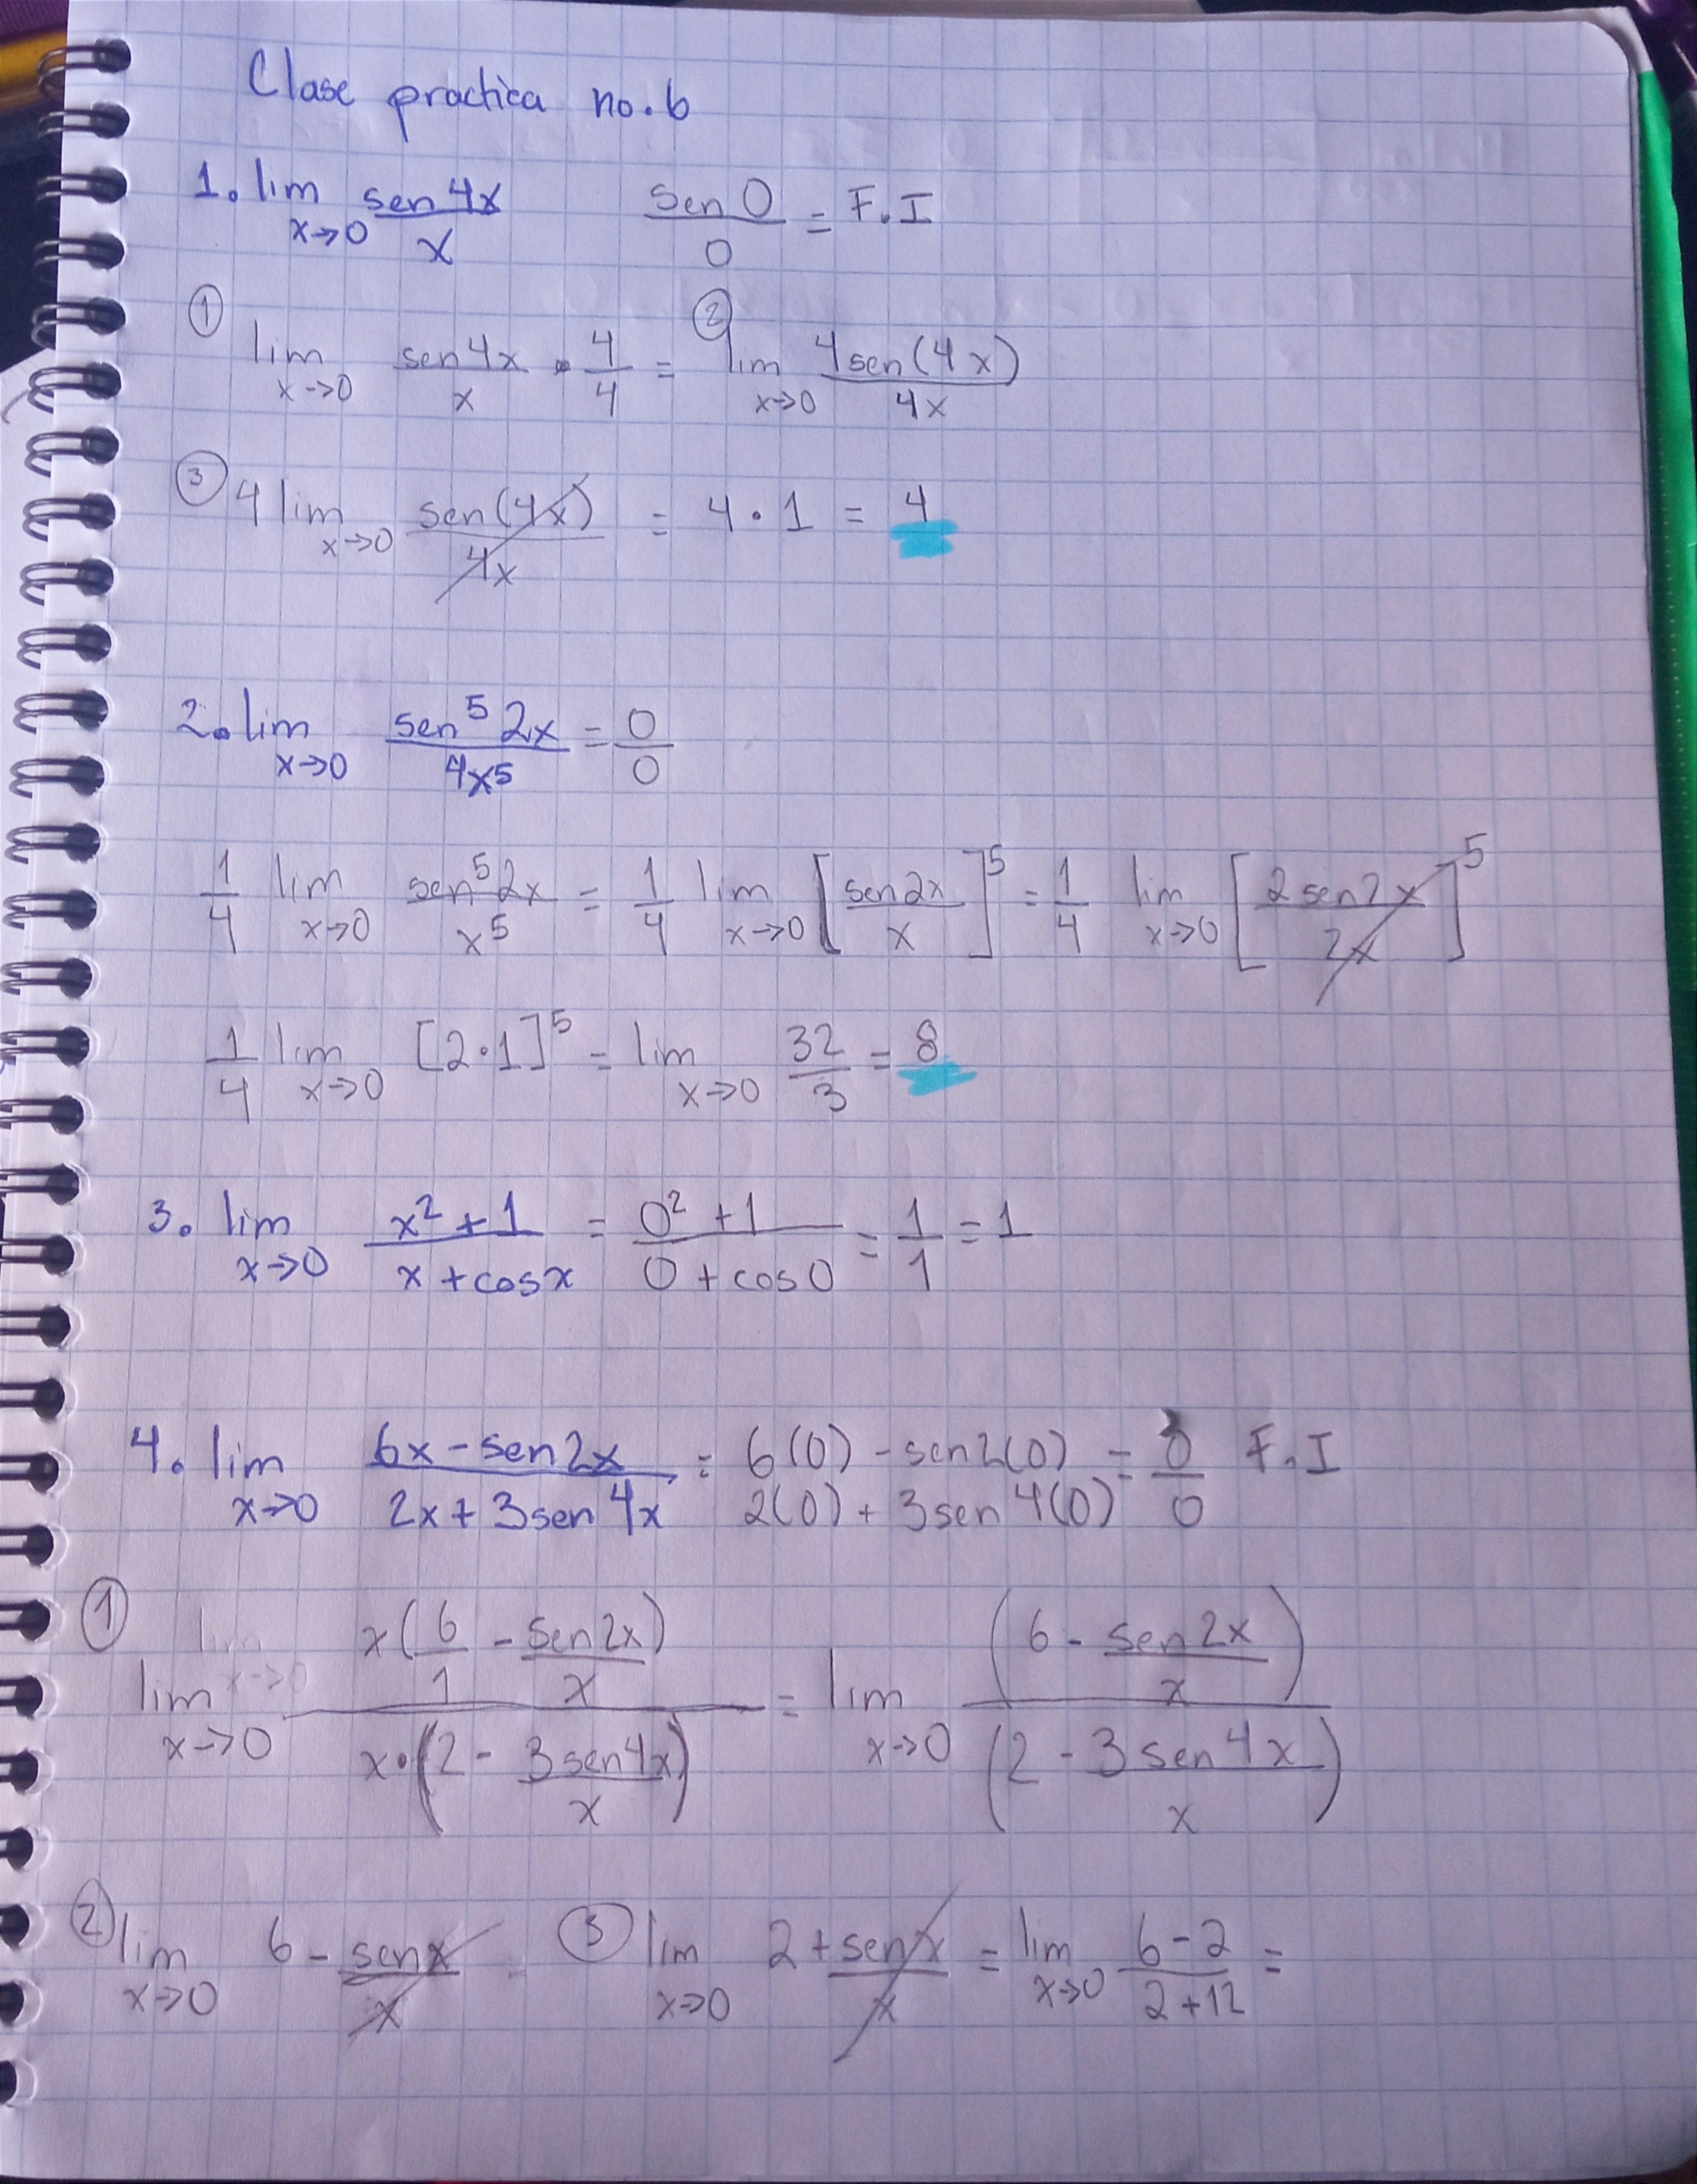 Clase practica no.6
1. lim x→0 sen4x/x   sen 0/0 = F.I
① lim x→0 sen4x/x · 4/4 = ② lim x→0 4sen(4x)/4x
③ 4 lim x→0 sen(4x)/4x = 4 · 1 = 4
2. lim x→0 sen⁵2x/4x⁵ = 0/0
1/4 lim x→0 sen⁵2x/x⁵ = 1/4 lim x→0 [sen2x/x]⁵ = 1/4 lim x→0 [2sen2x/2x]⁵
1/4 lim x→0 [2·1]⁵ = lim x→0 32/3 = 8
3. lim x→0 x²+1/x+cosx = 0²+1/0+cos0 = 1/1 = 1
4. lim x→0 6x-sen2x/2x+3sen4x = 6(0)-sen2(0)/2(0)+3sen4(0) = 0/0 F.I
① lim x→0 x(6/1 - sen2x/x)/x·(2 - 3sen4x/x) = lim x→0 (6 - sen2x/x)/(2 - 3sen4x/x)
② lim x→0 6 - senx/x   ③ lim x→0 2 + senx/x = lim x→0 6-2/2+12 =